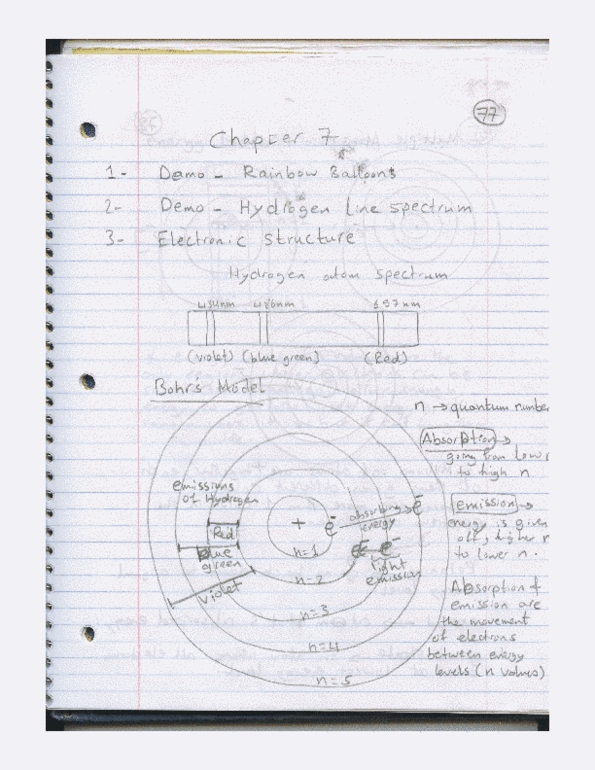 77
Chapter 7
1- Demo - Rainbow Balloons
2- Demo - Hydrogen Line spectrum
3- Electronic structure
Hydrogen atom spectrum
434nm 486nm 657nm
(violet) (blue green) (Red)
Bohr's Model
n → quantum number
Absorption →
going from low
to high n
emissions
of Hydrogen
Red
blue
green
violet
+
e⁻ absorbing energy e⁻
e⁻ e⁻
light
emission
n=1
n=2
n=3
n=4
n=5
emission →
energy is given
off, higher n
to lower n.
Absorption &
emission are
the movement
of electrons
between energy
levels (n values)